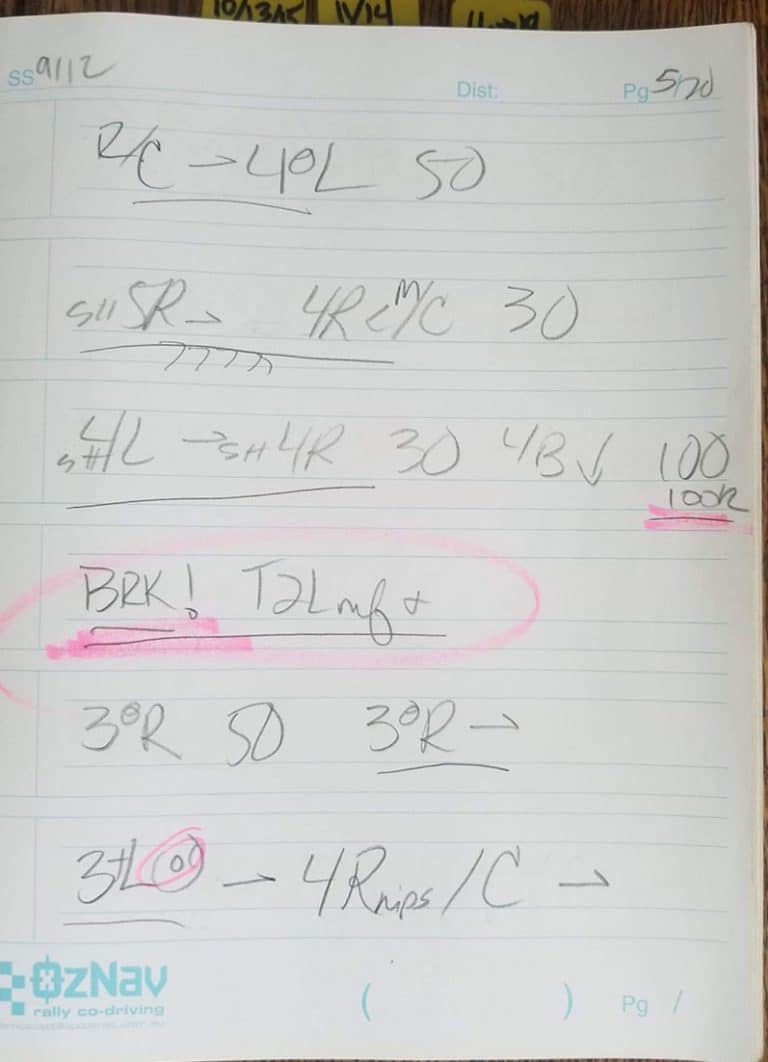 10/13/15 11/14
SS 9/12 Dist: Pg 5/20
R/C → 4ᶿL 50
SH 5R → 4R < M/C 30
SH 4L → SH 4R 30 4B ↓ 100
100R
BRK! T2L
3ᶿR 50 3ᶿR →
3+L → 4R nips /C →
OzNav ( ) Pg /
rally co-driving